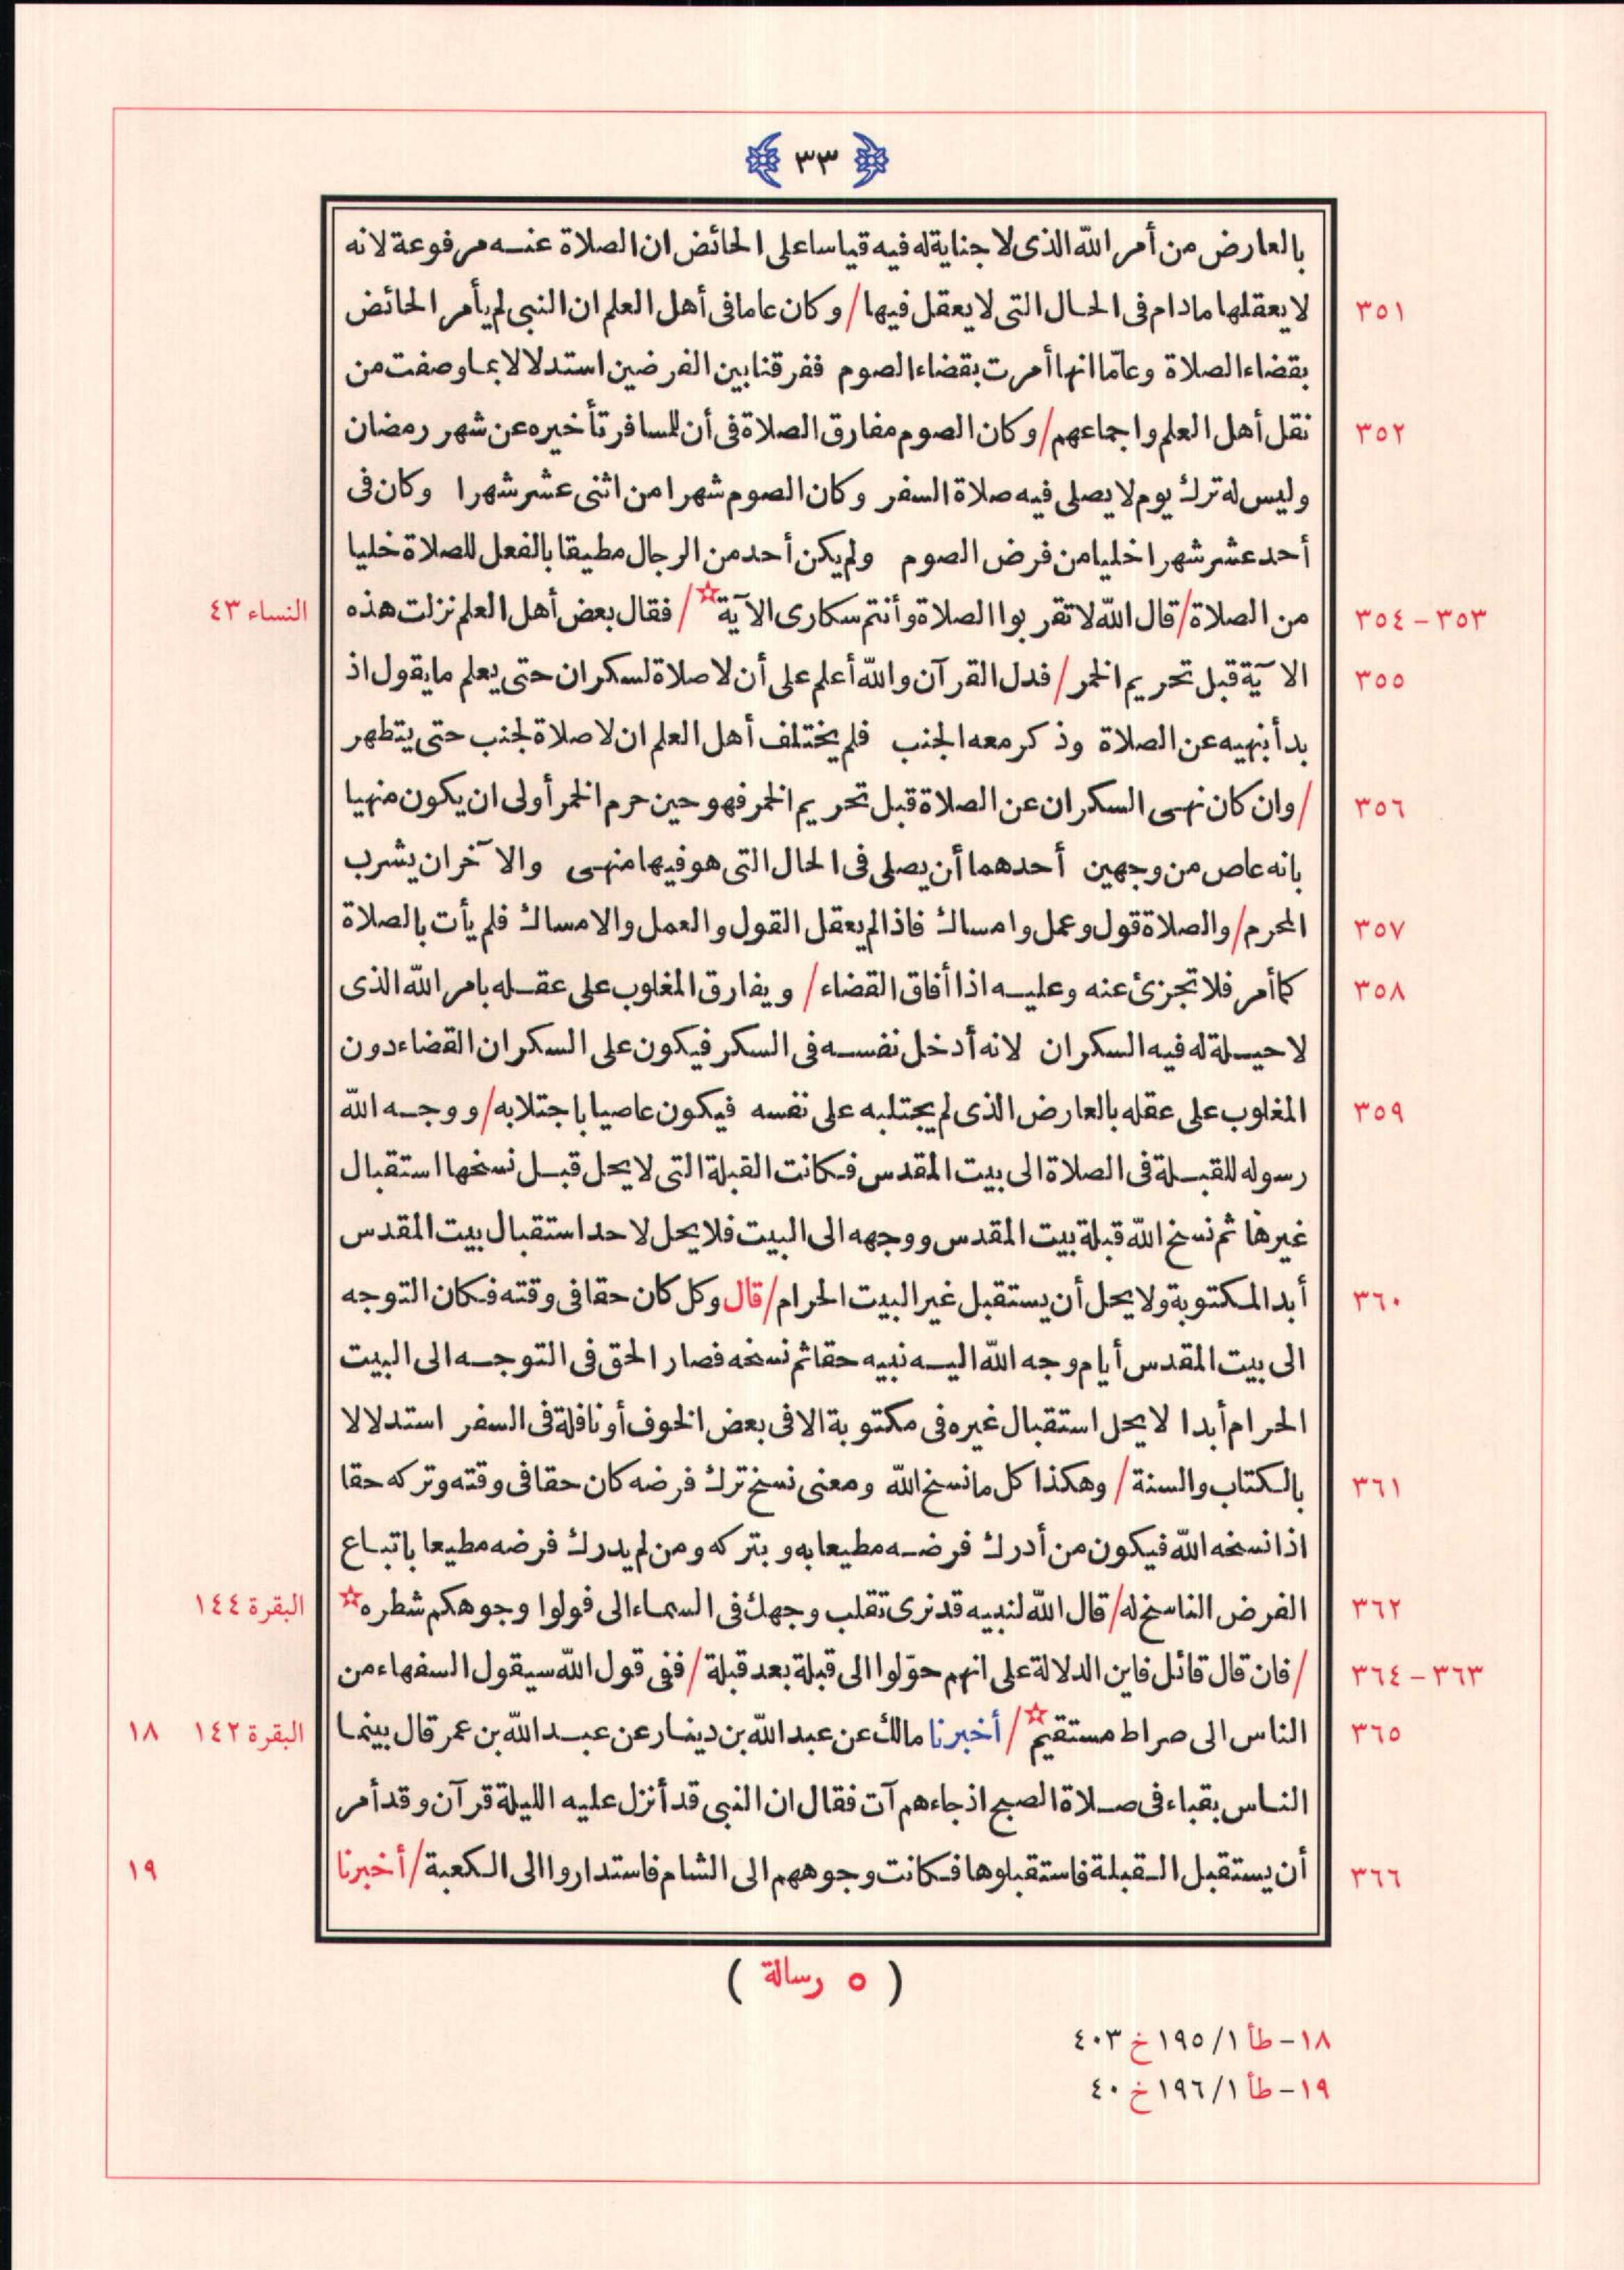 ﴿ ٣٣ ﴾
بالعارض من أمر الله الذى لا جناية له فيه قياسا على الحائض ان الصلاة عنه مرفوعة لانه
٣٥١ لا يعقلها مادام فى الحال التى لا يعقل فيها / وكان عاما فى أهل العلم ان النبى لم يأمر الحائض
بقضاء الصلاة وعامّا انها أمرت بقضاء الصوم ففرقنا بين الفرضين استدلالا بما وصفت من
٣٥٢ نقل أهل العلم واجماعهم / وكان الصوم مفارق الصلاة فى أن للمسافر تأخيره عن شهر رمضان
وليس له ترك يوم لا يصلى فيه صلاة السفر وكان الصوم شهرا من اثنى عشر شهرا وكان فى
أحد عشر شهرا خليا من فرض الصوم ولم يكن أحد من الرجال مطيقا بالفعل للصلاة خليا
٣٥٣ – ٣٥٤ من الصلاة / قال الله لا تقربوا الصلاة وأنتم سكارى الآية☆ / فقال بعض أهل العلم نزلت هذه النساء ٤٣
٣٥٥ الآية قبل تحريم الخمر / فدل القرآن والله أعلم على أن لا صلاة لسكران حتى يعلم ما يقول اذ
بدأ بنهيه عن الصلاة وذكر معه الجنب فلم يختلف أهل العلم ان لا صلاة لجنب حتى يتطهر
٣٥٦ / وان كان نهى السكران عن الصلاة قبل تحريم الخمر فهو حين حرم الخمر أولى ان يكون منهيا
بانه عاص من وجهين أحدهما أن يصلى فى الحال التى هو فيها منهى والآخر ان يشرب
٣٥٧ المحرم / والصلاة قول وعمل وامساك فاذا لم يعقل القول والعمل والامساك فلم يأت بالصلاة
٣٥٨ كما أمر فلا تجزئ عنه وعليه اذا أفاق القضاء / ويفارق المغلوب على عقله بامر الله الذى
لا حيلة له فيه السكران لانه أدخل نفسه فى السكر فيكون على السكران القضاء دون
٣٥٩ المغلوب على عقله بالعارض الذى لم يجتلبه على نفسه فيكون عاصيا باجتلابه / ووجه الله
رسوله للقبلة فى الصلاة الى بيت المقدس فكانت القبلة التى لا يحل قبل نسخها استقبال
غيرها ثم نسخ الله قبلة بيت المقدس ووجهه الى البيت فلا يحل لاحد استقبال بيت المقدس
٣٦٠ أبدا لمكتوبة ولا يحل أن يستقبل غير البيت الحرام / قال وكل كان حقا فى وقته فكان التوجه
الى بيت المقدس أيام وجه الله اليه نبيه حقا ثم نسخه فصار الحق فى التوجه الى البيت
الحرام أبدا لا يحل استقبال غيره فى مكتوبة الا فى بعض الخوف أو نافلة فى السفر استدلالا
٣٦١ بالكتاب والسنة / وهكذا كل ما نسخ الله ومعنى نسخ ترك فرضه كان حقا فى وقته وتركه حقا
اذا نسخه الله فيكون من أدرك فرضه مطيعا به وبتركه ومن لم يدرك فرضه مطيعا باتباع
٣٦٢ الفرض الناسخ له / قال الله لنبيه قد نرى تقلب وجهك فى السماء الى فولوا وجوهكم شطره☆ البقرة ١٤٤
٣٦٣ – ٣٦٤ / فان قال قائل فاين الدلالة على انهم حوّلوا الى قبلة بعد قبلة / ففى قول الله سيقول السفهاء من
٣٦٥ الناس الى صراط مستقيم☆ / أخبرنا مالك عن عبد الله بن دينار عن عبد الله بن عمر قال بينما البقرة ١٤٢ ١٨
الناس بقباء فى صلاة الصبح اذ جاءهم آت فقال ان النبى قد أنزل عليه الليلة قرآن وقد أمر
٣٦٦ أن يستقبل القبلة فاستقبلوها فكانت وجوههم الى الشام فاستداروا الى الكعبة / أخبرنا ١٩
( ٥ رسالة )
١٨ – طأ ١/ ١٩٥ خ ٤٠٣
١٩ – طأ ١/ ١٩٦ خ ٤٠